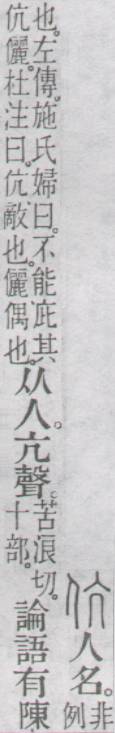 伉人名。非
例
也。左傳。施氏婦曰。不能庇其
伉儷。杜注曰。伉敵也。儷偶也。
从人。亢聲。
苦浪切。
十部。
論語有陳